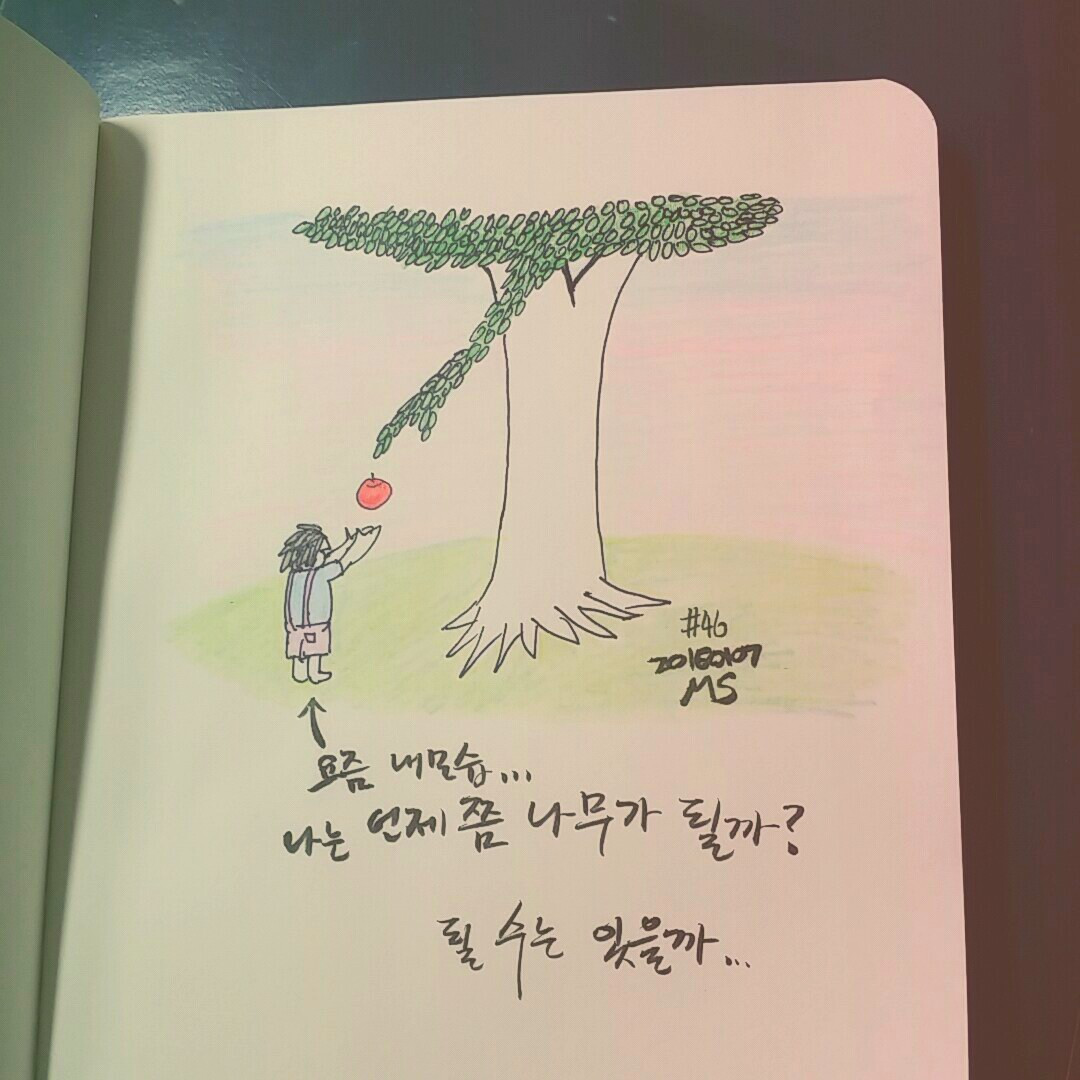 #46
20180107
MS
요즘 내모습...
나는 언제쯤 나무가 될까?
될 수는 있을까...